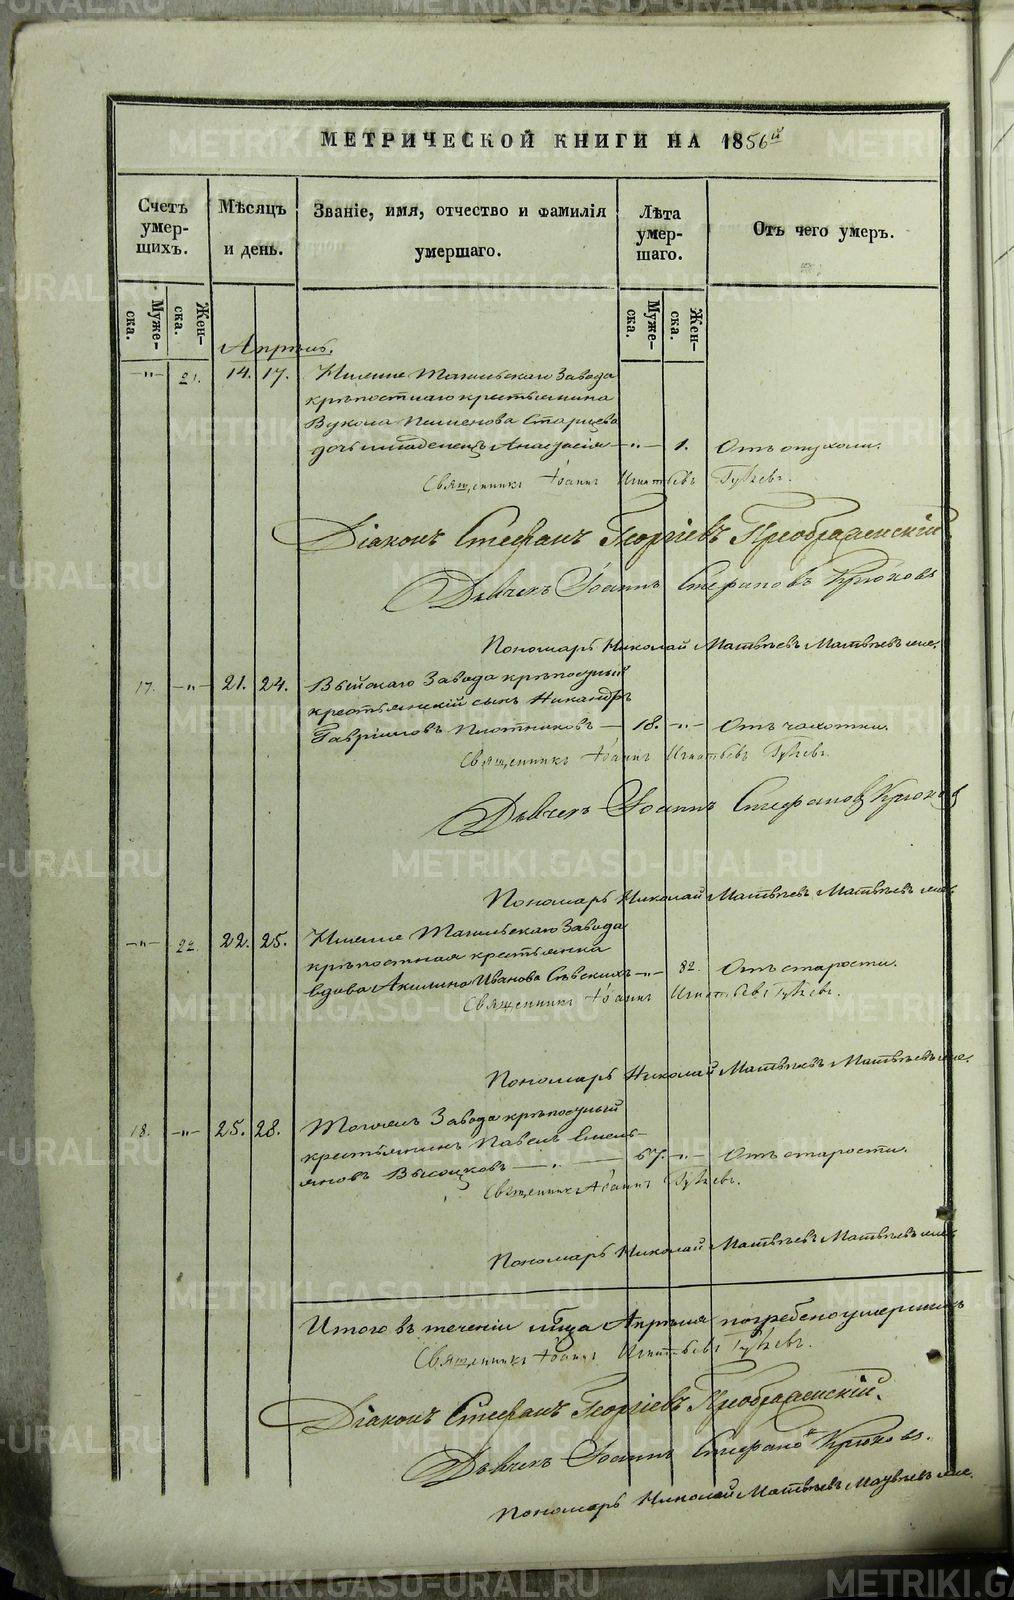 МЕТРИЧЕСКОЙ КНИГИ НА 1856й
Счетъ умер-шихъ.
Мѣсяцъ и день.
Званіе, имя, отчество и фамилія умершаго.
Лѣта умер-шаго.
Отъ чего умеръ.
Муже-ска.
Жен-ска.
Муже-ска.
Жен-ска.
Апрѣль.
—"— 21. 14. 17. Нижне Тагильскаго Завода
крѣпостнаго крестьянина
Вукола Пименова Старцева
дочь младенецъ Анастасія —"— 1. Отъ опухоли.
Священникъ Іоаннъ Игнатьевъ
Діаконъ Стефанъ Георгіевъ Преображенскій
Дьячекъ Іоаннъ Стефановъ Крюковъ
Пономарь Николай Матвѣевъ Матвѣевъ
17. —"— 21. 24. Выйскаго Завода крѣпостный
крестьянскій сынъ Никандръ
Гавріиловъ Плотниковъ — 18. —"— Отъ чахотки.
Священникъ Іоаннъ Игнатьевъ
Дьячекъ Іоаннъ Стефановъ Крюковъ
Пономарь Николай Матвѣевъ Матвѣевъ
—"— 22. 22. 25. Нижне Тагильскаго Завода
крѣпостная крестьянка
вдова Акилина Иванова —"— 82. Отъ старости.
Священникъ Іоаннъ Игнатьевъ
Пономарь Николай Матвѣевъ Матвѣевъ
18. —"— 25. 28. Завода крѣпостный
крестьянинъ Павелъ Емель-
яновъ — " — 67. —"— Отъ старости.
Священникъ Іоаннъ
Пономарь Николай Матвѣевъ Матвѣевъ
Итого въ теченіи мѣсяца Апрѣля погребено умершихъ
Священникъ Іоаннъ Игнатьевъ
Діаконъ Стефанъ Георгіевъ Преображенскій.
Дьячекъ Іоаннъ Стефановъ Крюковъ.
Пономарь Николай Матвѣевъ Матвѣевъ
METRIKI.GASO-URAL.RU